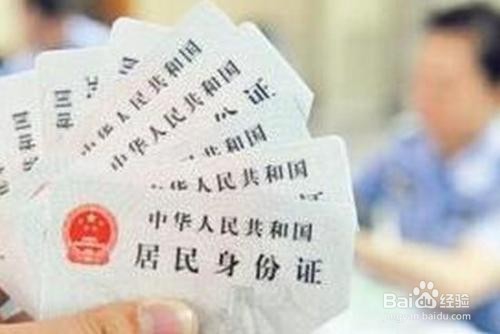 国
国
中华人民共和国
中华人民共和国
份证
中华人民共和国
民共和国
中华人民共和国
居民身份证
Baidu经验
jingyan.baidu.com